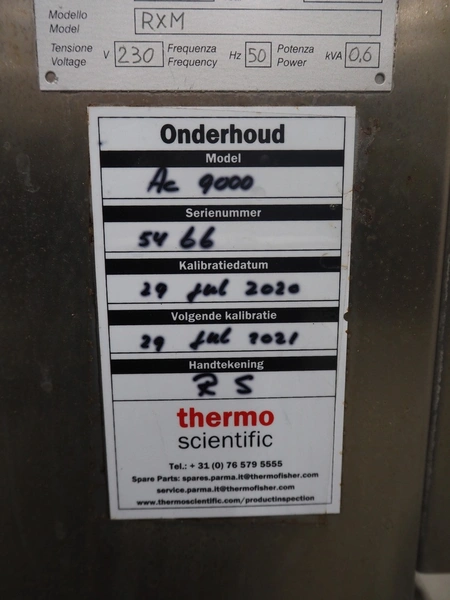 Modello
Model RXM
Tensione
Voltage V 230 Frequenza
Frequency Hz 50 Potenza
Power kVA 0,6
Onderhoud
Model
Ac 9000
Serienummer
54 66
Kalibratiedatum
29 jul 2020
Volgende kalibratie
29 jul 2021
Handtekening
R S
thermo
scientific
Tel.: + 31 (0) 76 579 5555
Spare Parts: spares.parma.it@thermofisher.com
service.parma.it@thermofisher.com
www.thermoscientific.com/productinspection